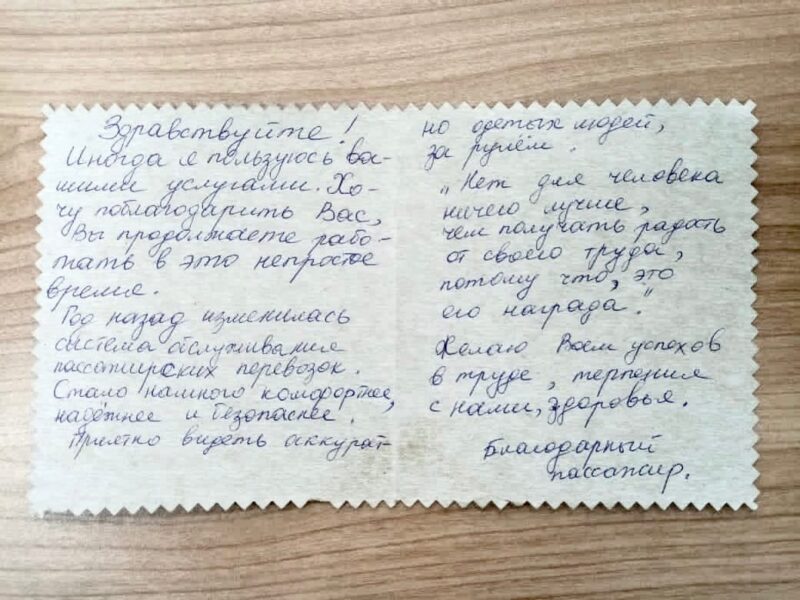 Здравствуйте!
Иногда я пользуюсь ва-
шими услугами. Хо-
чу поблагодарить Вас,
Вы продолжаете рабо-
тать в это непростое
время.
Год назад изменилась
система обслуживания
пассажирских перевозок.
Стало намного комфортнее,
надёжнее и безопаснее.
Приятно видеть аккурат-
но одетых людей,
за рулём.
„Нет для человека
ничего лучше,
чем получать радость
от своего труда,
потому что, это
его награда."
Желаю Вам успехов
в труде, терпения
с нами, здоровья.
Благодарный
пассажир.